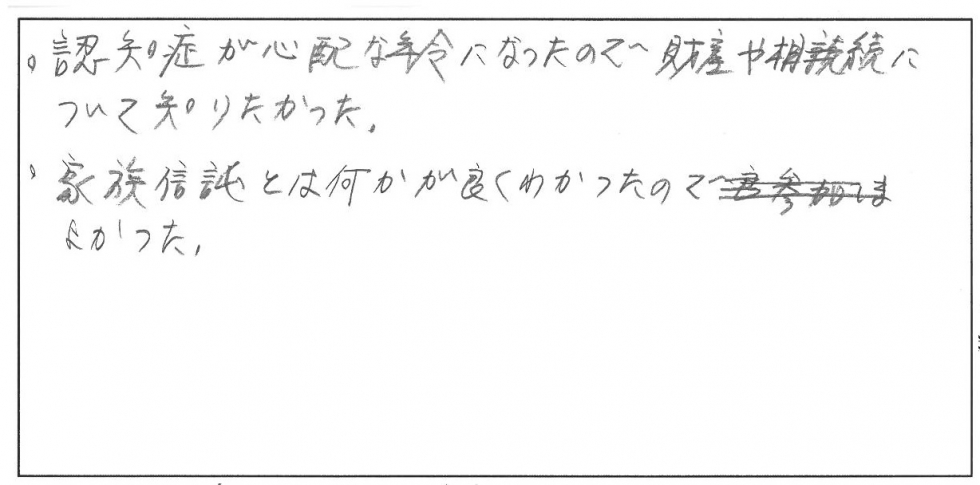 。認知症が心配な年令になったので財産や相続に
ついて知りたかった。
。家族信託とは何かが良くわかったので
よかった。